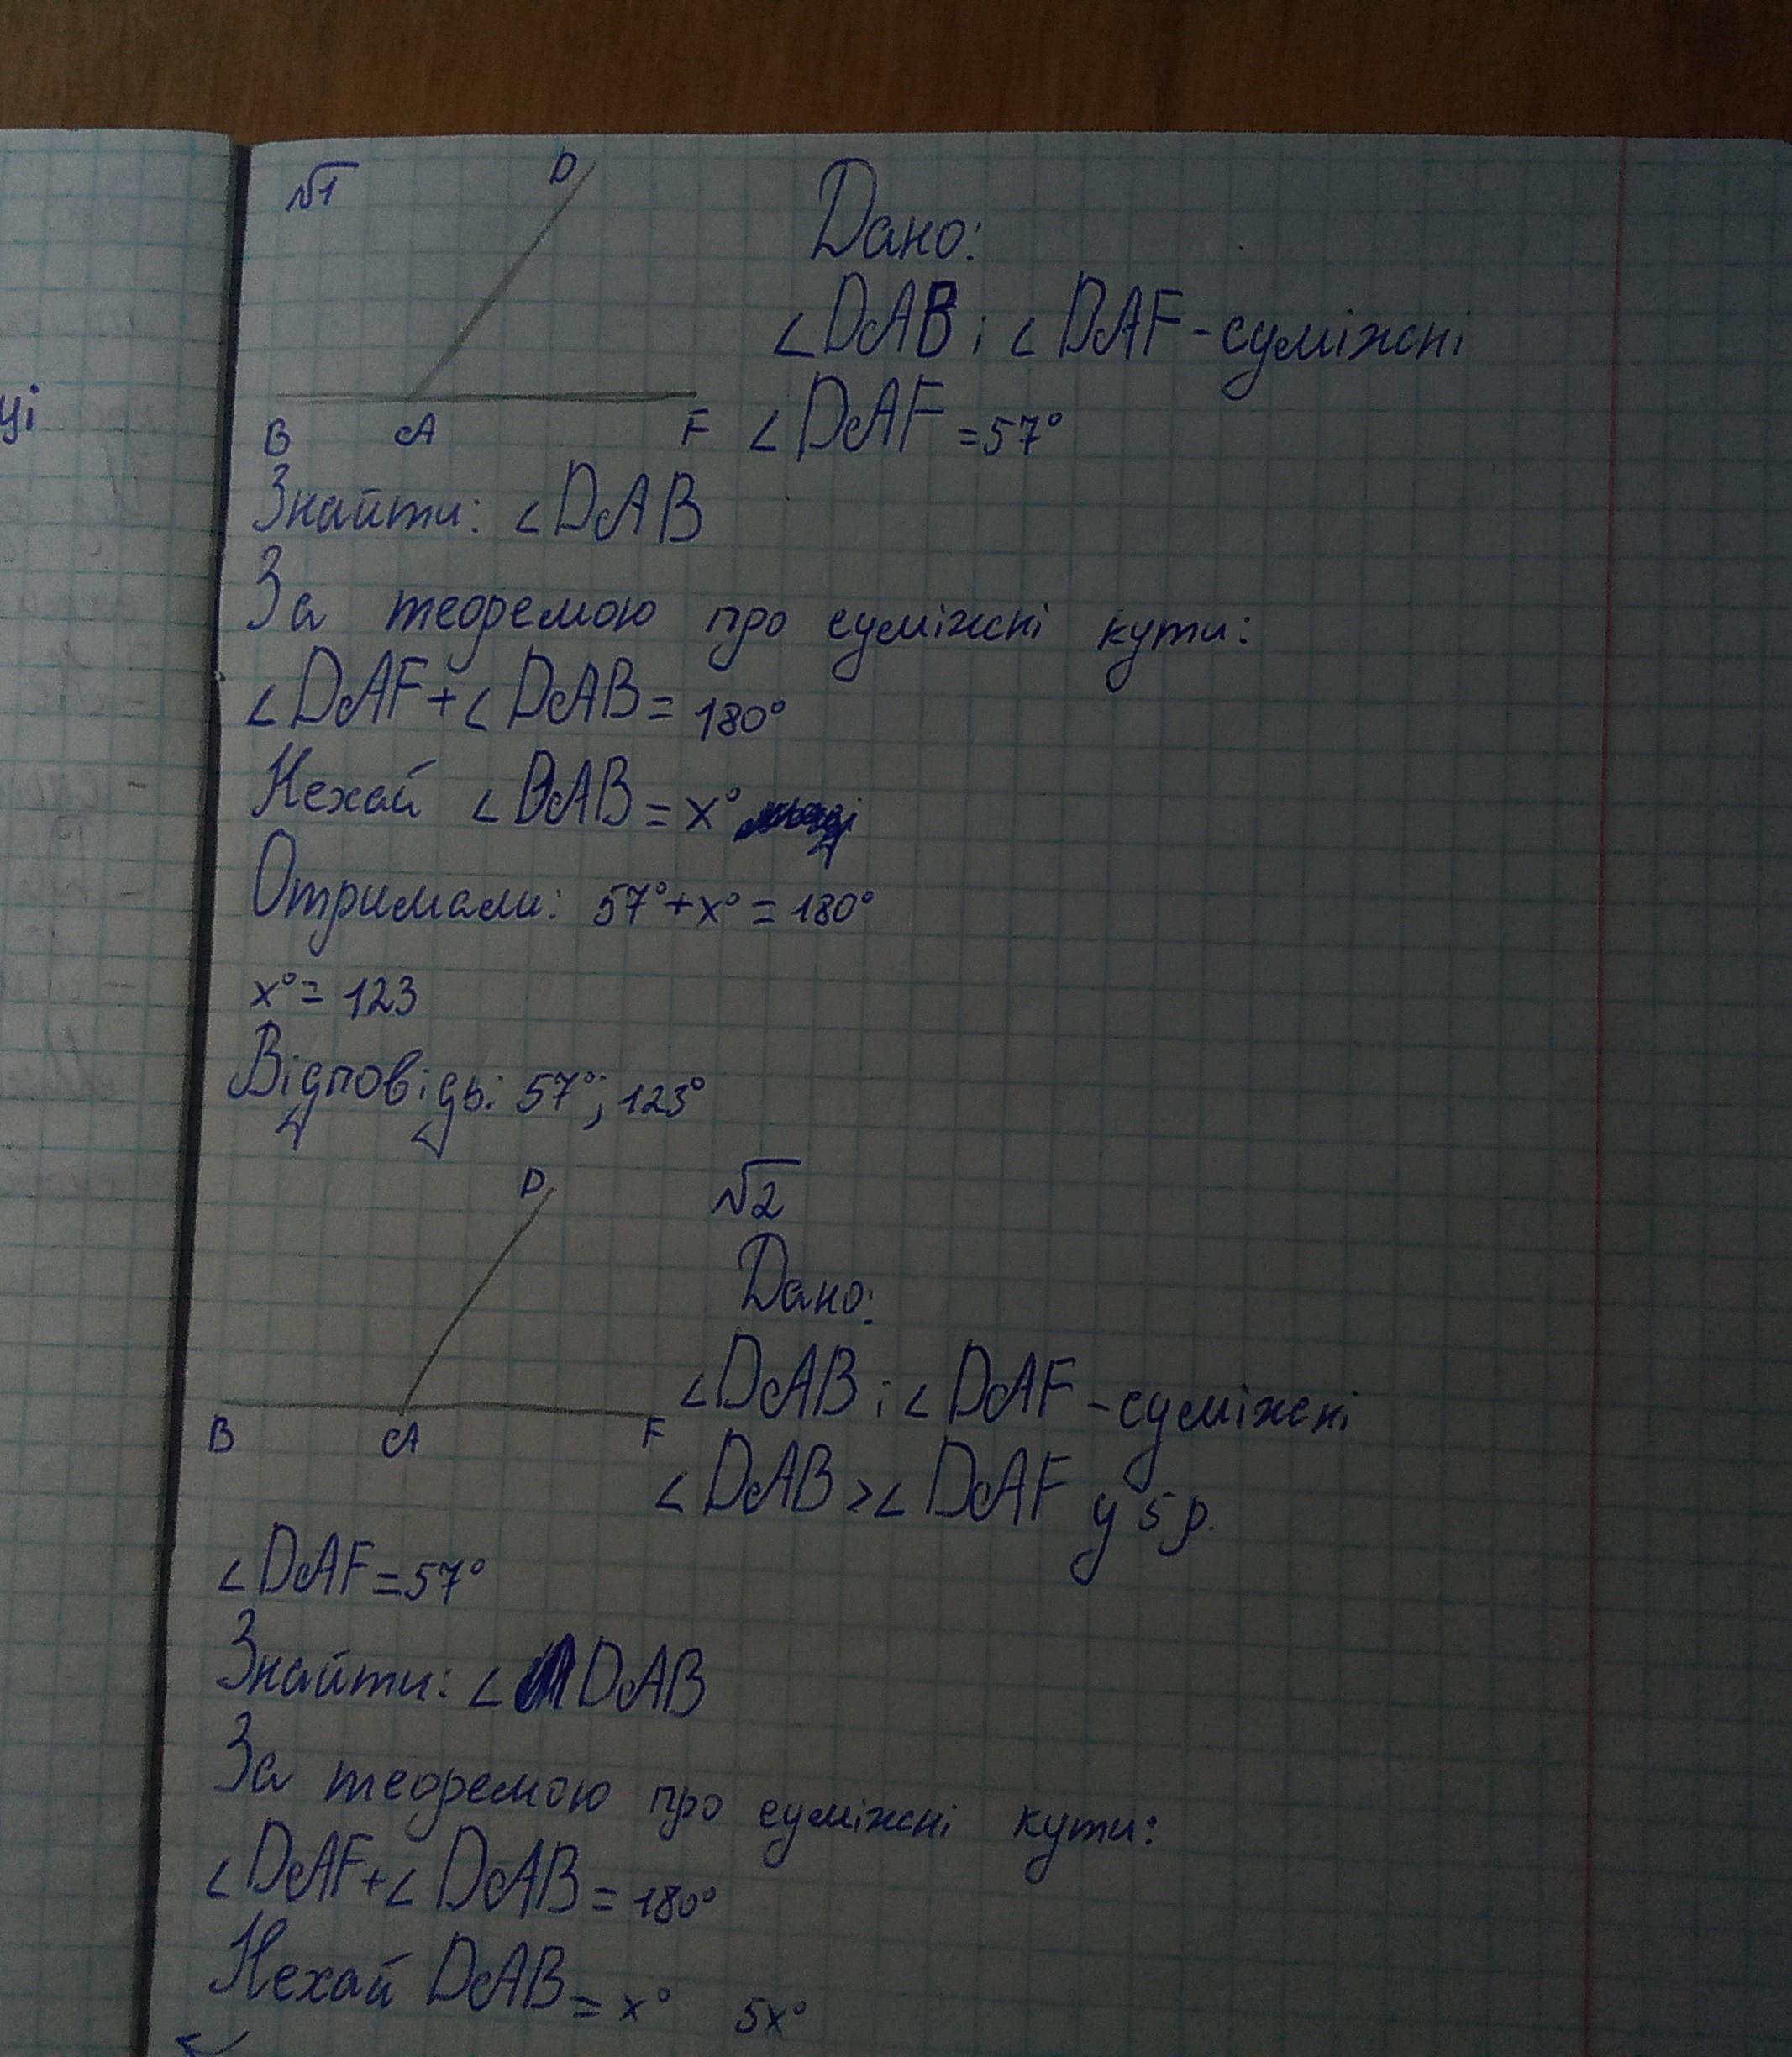 №1
D
Дано:
∠DAB і ∠DAF - суміжні
B A F
∠DAF = 57°
Знайти: ∠DAB
За теоремою про суміжні кути:
∠DAF + ∠DAB = 180°
Нехай ∠DAB = x°
Отримали: 57° + x° = 180°
x° = 123
Відповідь: 57°; 123°
D
№2
Дано:
∠DAB і ∠DAF - суміжні
B A F
∠DAB > ∠DAF у 5 р.
∠DAF = 57°
Знайти: ∠DAB
За теоремою про суміжні кути:
∠DAF + ∠DAB = 180°
Нехай DAB = x° 5x°
ці